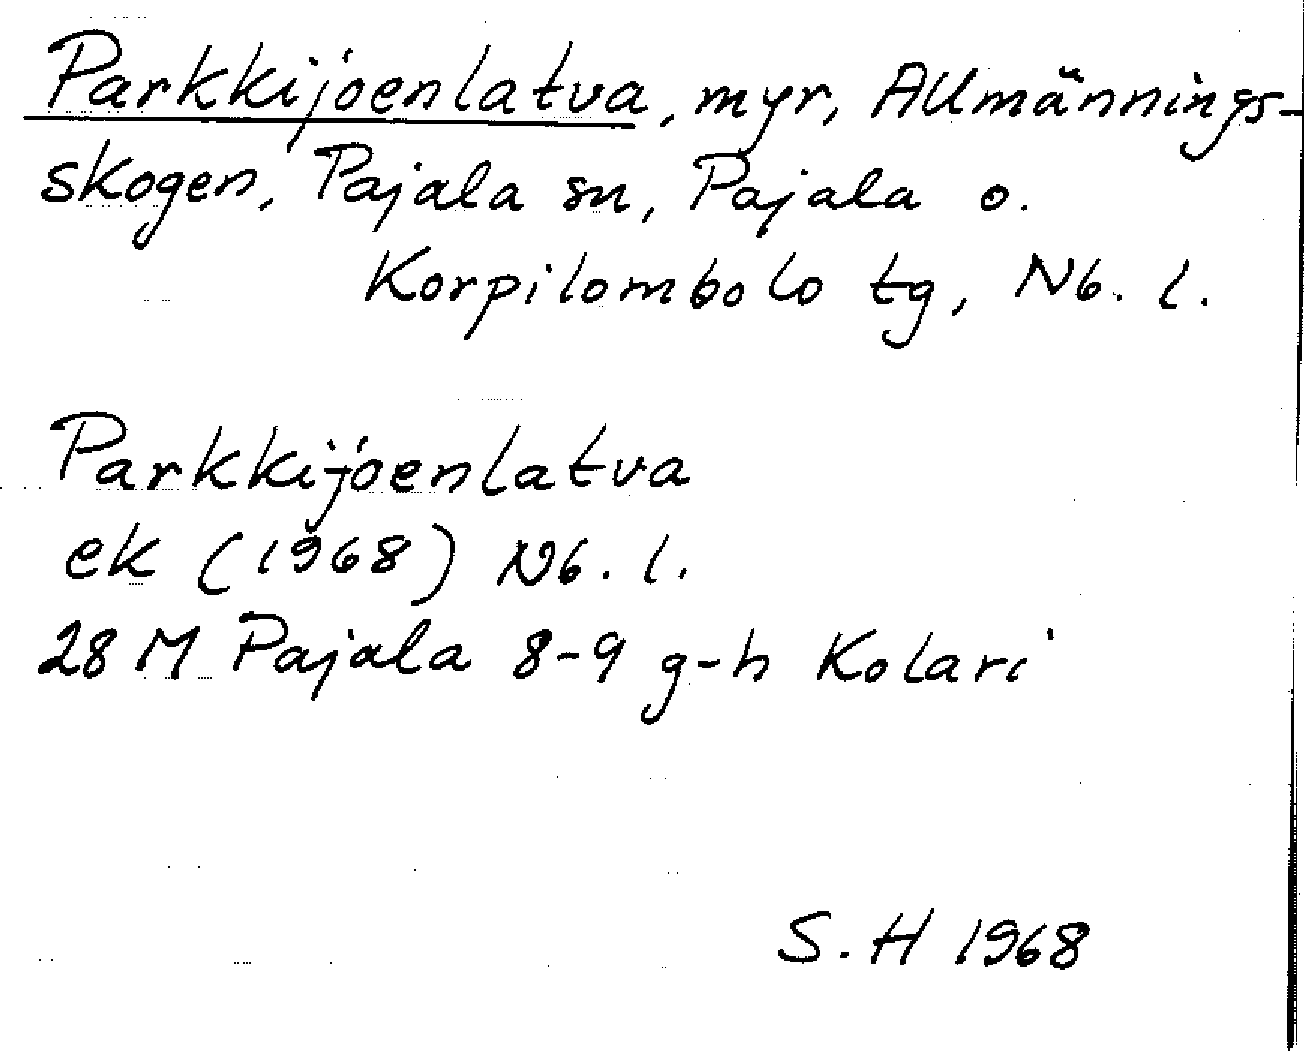 Parkkijoenlatva, myr, Allmännings-
skogen, Pajala sn, Pajala o.
Korpilombolo tg, Nb. l.
Parkkijoenlatva
ek (1968) Nb. l.
28 M Pajala 8-9 g-h Kolari
S. H 1968